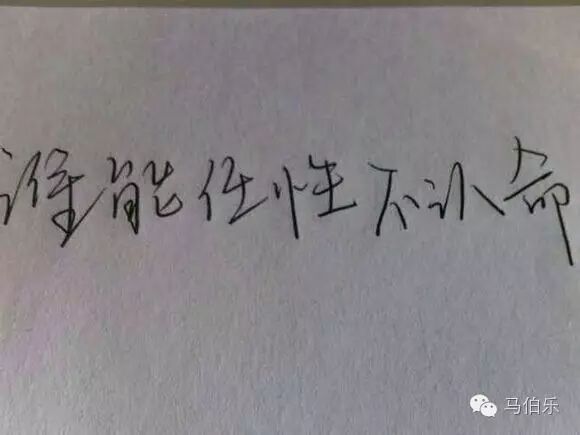 谁能任性不认命
马伯乐